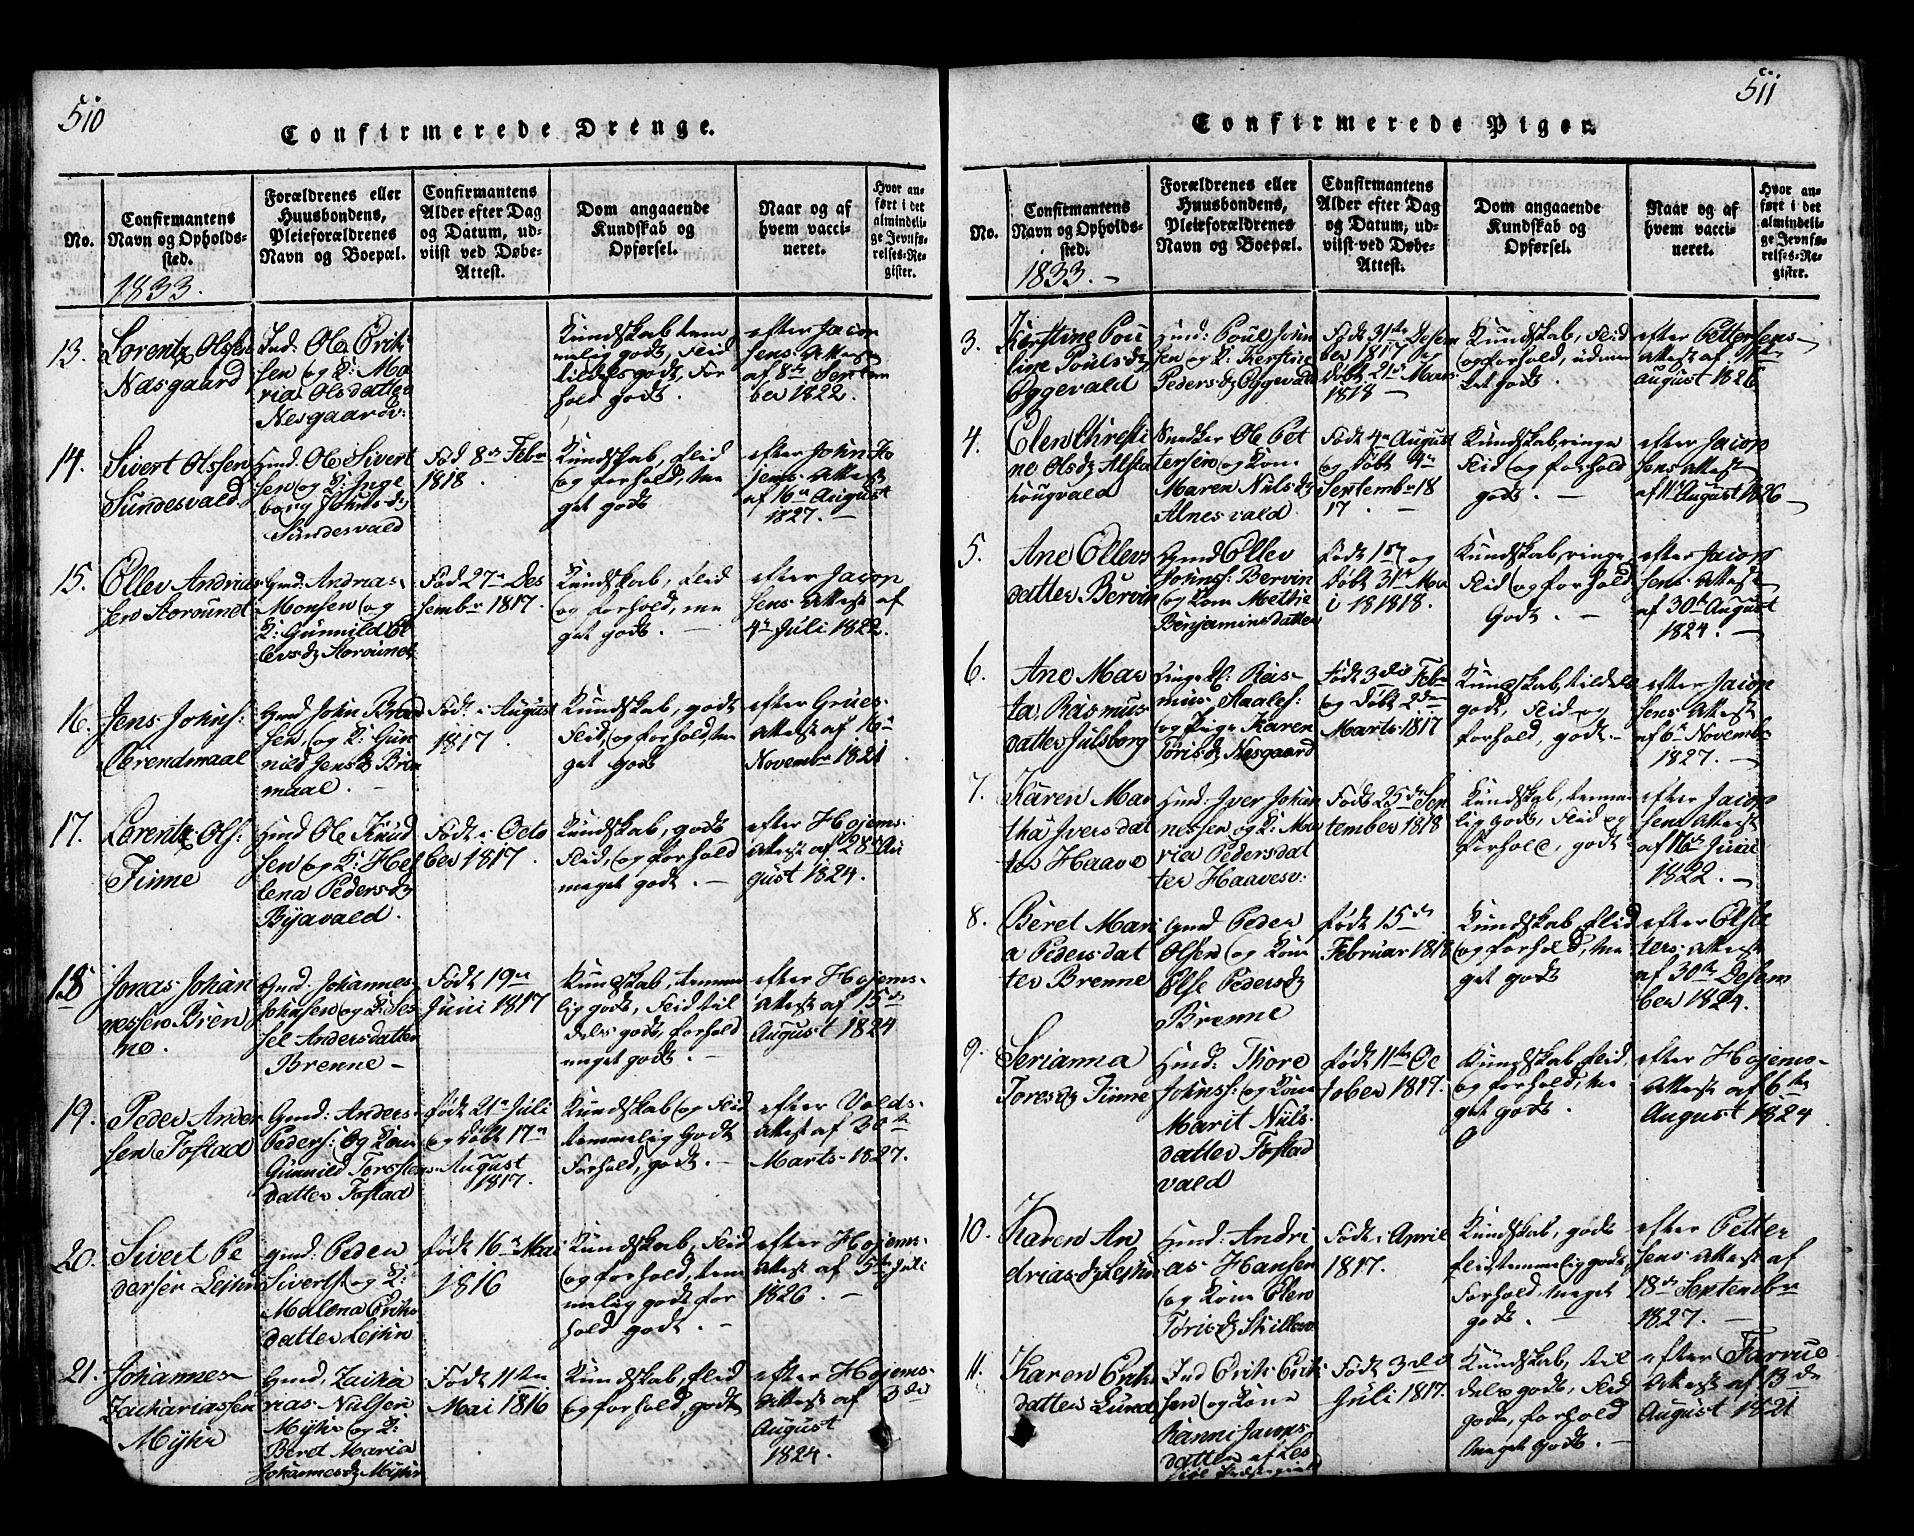 510
Confirmerede Drenge.
No.
Confirmantens
Navn og Opholds-
sted.
1833.
Forældrenes eller
Huusbondens,
Pleieforældrenes
Navn og Boepæl.
Confirmantens
Alder efter Dag
og Datum, ud-
viist ved Døbe-
Attest.
Dom angaaende
Kundskab og
Opførsel.
Naar og af
hvem vacci-
neret.
Hvor an-
ført i det
almindeli-
ge Jevnfø-
relses-Re-
gister.
13.
Lorentz Olssen
Næsgaard
Ind: Ole Erik-
sen og K: Ma
ria Olsdatter
Nesgaardv:
Kundskab tem
melig godt, Flid
tildels godt, For
hold godt.
efter Jacop
sens Attest
af 8de Septem
ber 1822.
14.
Sivert Olssen
Sundesvald
Hmd: Ole Sivert
sen og K: Inge
borg Johnsd:
Sundesvald
Fød 8de Febr
1818.
Kundskab, flid
og forhold, me
get godt
efter John Ho
jems Attest
af 16de August
1827. —
15.
Ollev Andrias
sen
Gmd: Andrias
Monsen og
K: Gunnild Ol
levsd
Fød 27de Des
sembr 1817.
Kundskab, flid
og forhold, me
get godt. —
efter Jacop
sens Attest af
4de Juli 1822.
16.
Jens Johns:
Ørendmaal
Gmd John Brend
sen, og K: Gun
nild Jensd
maal. —
Fød i August
1817.
Kundskab, godt
Flid, og forhold, me
get godt
efter Grues
Attest af 16de
Novembr 1821
17.
Lorentz Ols:
Finne
Hmd Ole Knud
sen og K: Hel
lena Pedersd
Byavald.
Født i Octo
ber 1817.
Kundskab, godt
Flid, og forhold
meget godt. —
efter Hojems
Attest af 28de Au
gust 1824.
18
Jonas Johan
nessen Bren
ne.
Gmd: Johannes
Johnsen og K: Ses
sel Andersdatter
Brenne —
Født 19de
Juni 1817
Kundskab, temme
lig godt, Flid til
dels godt, forhold
meget godt. —
efter Hojems
Attest af 15de
August 1824
19.
Peder Ander
sen Fostad
Gmd: Anders
Peders: Og Kone
Gunnild Torsten
datter Fostad
født 21de Juli
og Døbt 17de
August
1817.
Kundskab og Flid
temmelig Godt
Forhold, godt. —
efter Volds
Attest af 30te
Marts 1827.
20.
Sivert Pe
dersen
gmd: Peder
Sivertsen og K:
Malena Eriks
datter
født 16de Mai
1816
Kundskab, Flid
og forhold, tem
melig godt for
hold godt. —
efter Hojems
Attest af 5te Juli
1826. —
21.
Johannes
Zachariassen
Myhr
Gmd, Zacha
rias Nilssen
Myhr og K:
Beret Maria
Johannesd Myhr
Født 11te
Mai 1816
Kundskab, flid
og forhold, godt
efter Hojems
Attest af 3de
August
1824.
511
Confirmerede Piger.
No.
Confirmantens
Navn og Opholds-
sted.
1833. —
Forældrenes eller
Huusbondens,
Pleieforældrenes
Navn og Boepæl.
Confirmantens
Alder efter Dag
og Datum, ud-
viist ved Døbe-
Attest.
Dom angaaende
Kundskab og
Opførsel.
Naar og af
hvem vacci-
neret.
Hvor an-
ført i det
almindeli-
ge Jevnfø-
relses-Re-
gister.
3.
Kirstine Pou
line Poulsd
Oggevald
Hmd: Poul John
sen og K: Kerstine
Pedersd Oggevald
Født 31te Desem
ber 1817 og
Døbt 21de Mars
1818 —
Kundskab, Flid
og forhold, udmer
ket godt.
efter Pettersens
Attest af 11te
August 1826
4.
Elen Christi
ne Olsd
Snedker Ole Pet
tersen og Kone
Maren Nilsd
Alnesvald
Født 4de August
og Døbt 4de
September 18
17.
Kundskab, ringe
Flid og forhold
godt. —
efter Jacop
sens Attest
af 11te August 1826
5.
Ane Ollevs
datter Bervin
Gmd Ollev
Johns: Bervin
og Kone Methe
Benjaminsdatter
født 1ste og
Døbt 31te Ma
i 18 1818.
Kundskab, ringe
Flid og forhold
Godt. —
efter Jacop
sens Attest
af 30te August
1824. —
6.
Ane Mar
ta Rasmus
datter Julsborg
Ras
mus Staales:
og Pige Karen
Torisd Nesgaard
født 3die Febr
og Døbt 2den
Marts 1817
Kundskab, tildels
godt, Flid og
forhold, godt —
efter Jacop
sens Attest
af 6te Novembr
1827. —
7.
Karen Mar
tha Jversdat
ter Haave
Hmd: Jver Johan
nessen og K: Ma
ria Pedersdat
ter Haavesv:
Født 25de Sep
tember 1818
Kundskab, temme
lig godt, Flid og
forhold, godt
efter Jacop
sens Attest
af 16de Juni
1822. —
8.
Beret Mari
a Pedersdat
ter Brenne
Gmd Peder
Olsen og Kone
Else Pedersd
Brenne
født 15de
Februar 1818
Kundskab, Flid
og forhold, me
get godt
efter
ters Attest
af 30te Desem
ber 1824.
9.
Serianna
Toresd Finne
Hmd: Thore
Johns: og Kone
Marit Nils
datter Fostad
vald
født 11te Oc
tober 1817.
Kundskab, Flid,
og forhold, me
get godt.
efter Hojems
Attest af 6te
August 1824
10.
Karen An
driasd
Hmd: Andri
as Hansen
og Kone Elen
Torisd
Født i April
1817.
Kundskab, godt
flid temmelig godt,
Forhold, meget
godt. —
efter Petter
sens Attest af
18de Septembr
1827. —
11.
Karen Eriks
datter Lund
Ind Erik Erik
sen og Kone
Ranni Jacops
datter
Født 3die
Juli 1817.
Kundskab, til
dels godt, Flid
godt, forhold
meget godt. —
efter
Attest af 13de
August 1821